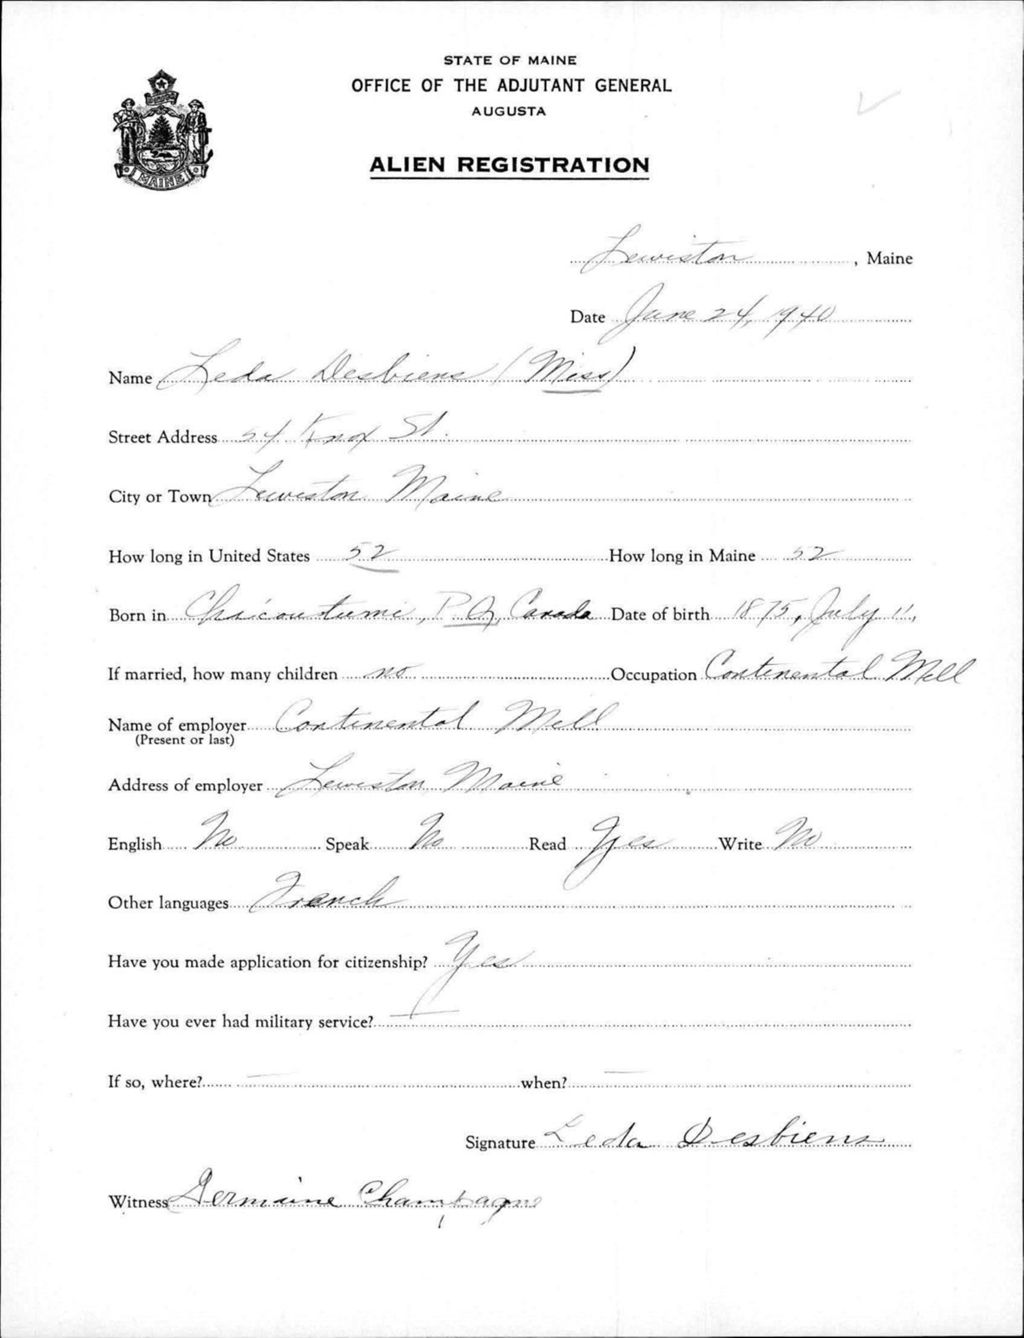 STATE OF MAINE
OFFICE OF THE ADJUTANT GENERAL
AUGUSTA
ALIEN REGISTRATION
MAINE
Lewiston, Maine
Date June 24, 1940
Name Leda Desbiens (Miss)
Street Address 54 Knox St.
City or Town Lewiston Maine
How long in United States 52 How long in Maine 52
Born in Chicoutumi, P.Q, Canada Date of birth 1875, July 11,
If married, how many children no Occupation Continental Mill
Name of employer Continental Mill
(Present or last)
Address of employer Lewiston Maine
English No Speak No Read Yes Write No
Other languages French
Have you made application for citizenship? Yes
Have you ever had military service? —
If so, where? — when? —
Signature Leda Desbiens
Witness Germaine Champagne